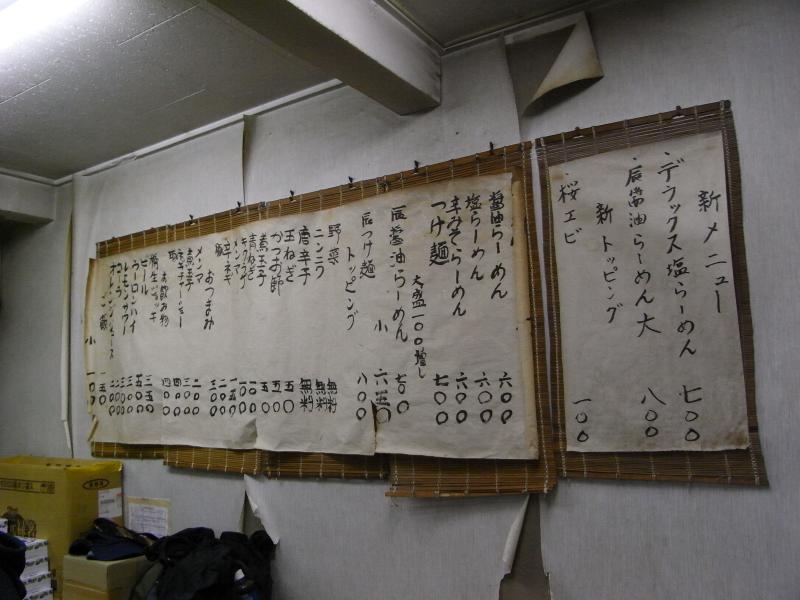 新メニュー
・デラックス塩らーめん 七〇〇
・辰醤油らーめん大 八〇〇
新トッピング
・桜エビ 一〇〇
醤油らーめん 六〇〇
塩らーめん 六〇〇
辛みそらーめん 六〇〇
つけ麺 七〇〇
大盛一〇〇増し
辰醤油らーめん 七〇〇
小 六五〇
辰つけ麺 八〇〇
トッピング
野菜 無料
ニンニク 無料
唐辛子 無料
玉ねぎ 五〇
かつお節 五〇
煮玉子 五〇
青ねぎ 一〇〇
キクラゲ 一〇〇
メンマ 一五〇
辛ネギ 二〇〇
おつまみ
メンマ 二〇〇
煮玉子
お飲み物
ビール
ウーロンハイ
レモンサワー
コーラ
オレンジジュース
小 一〇〇